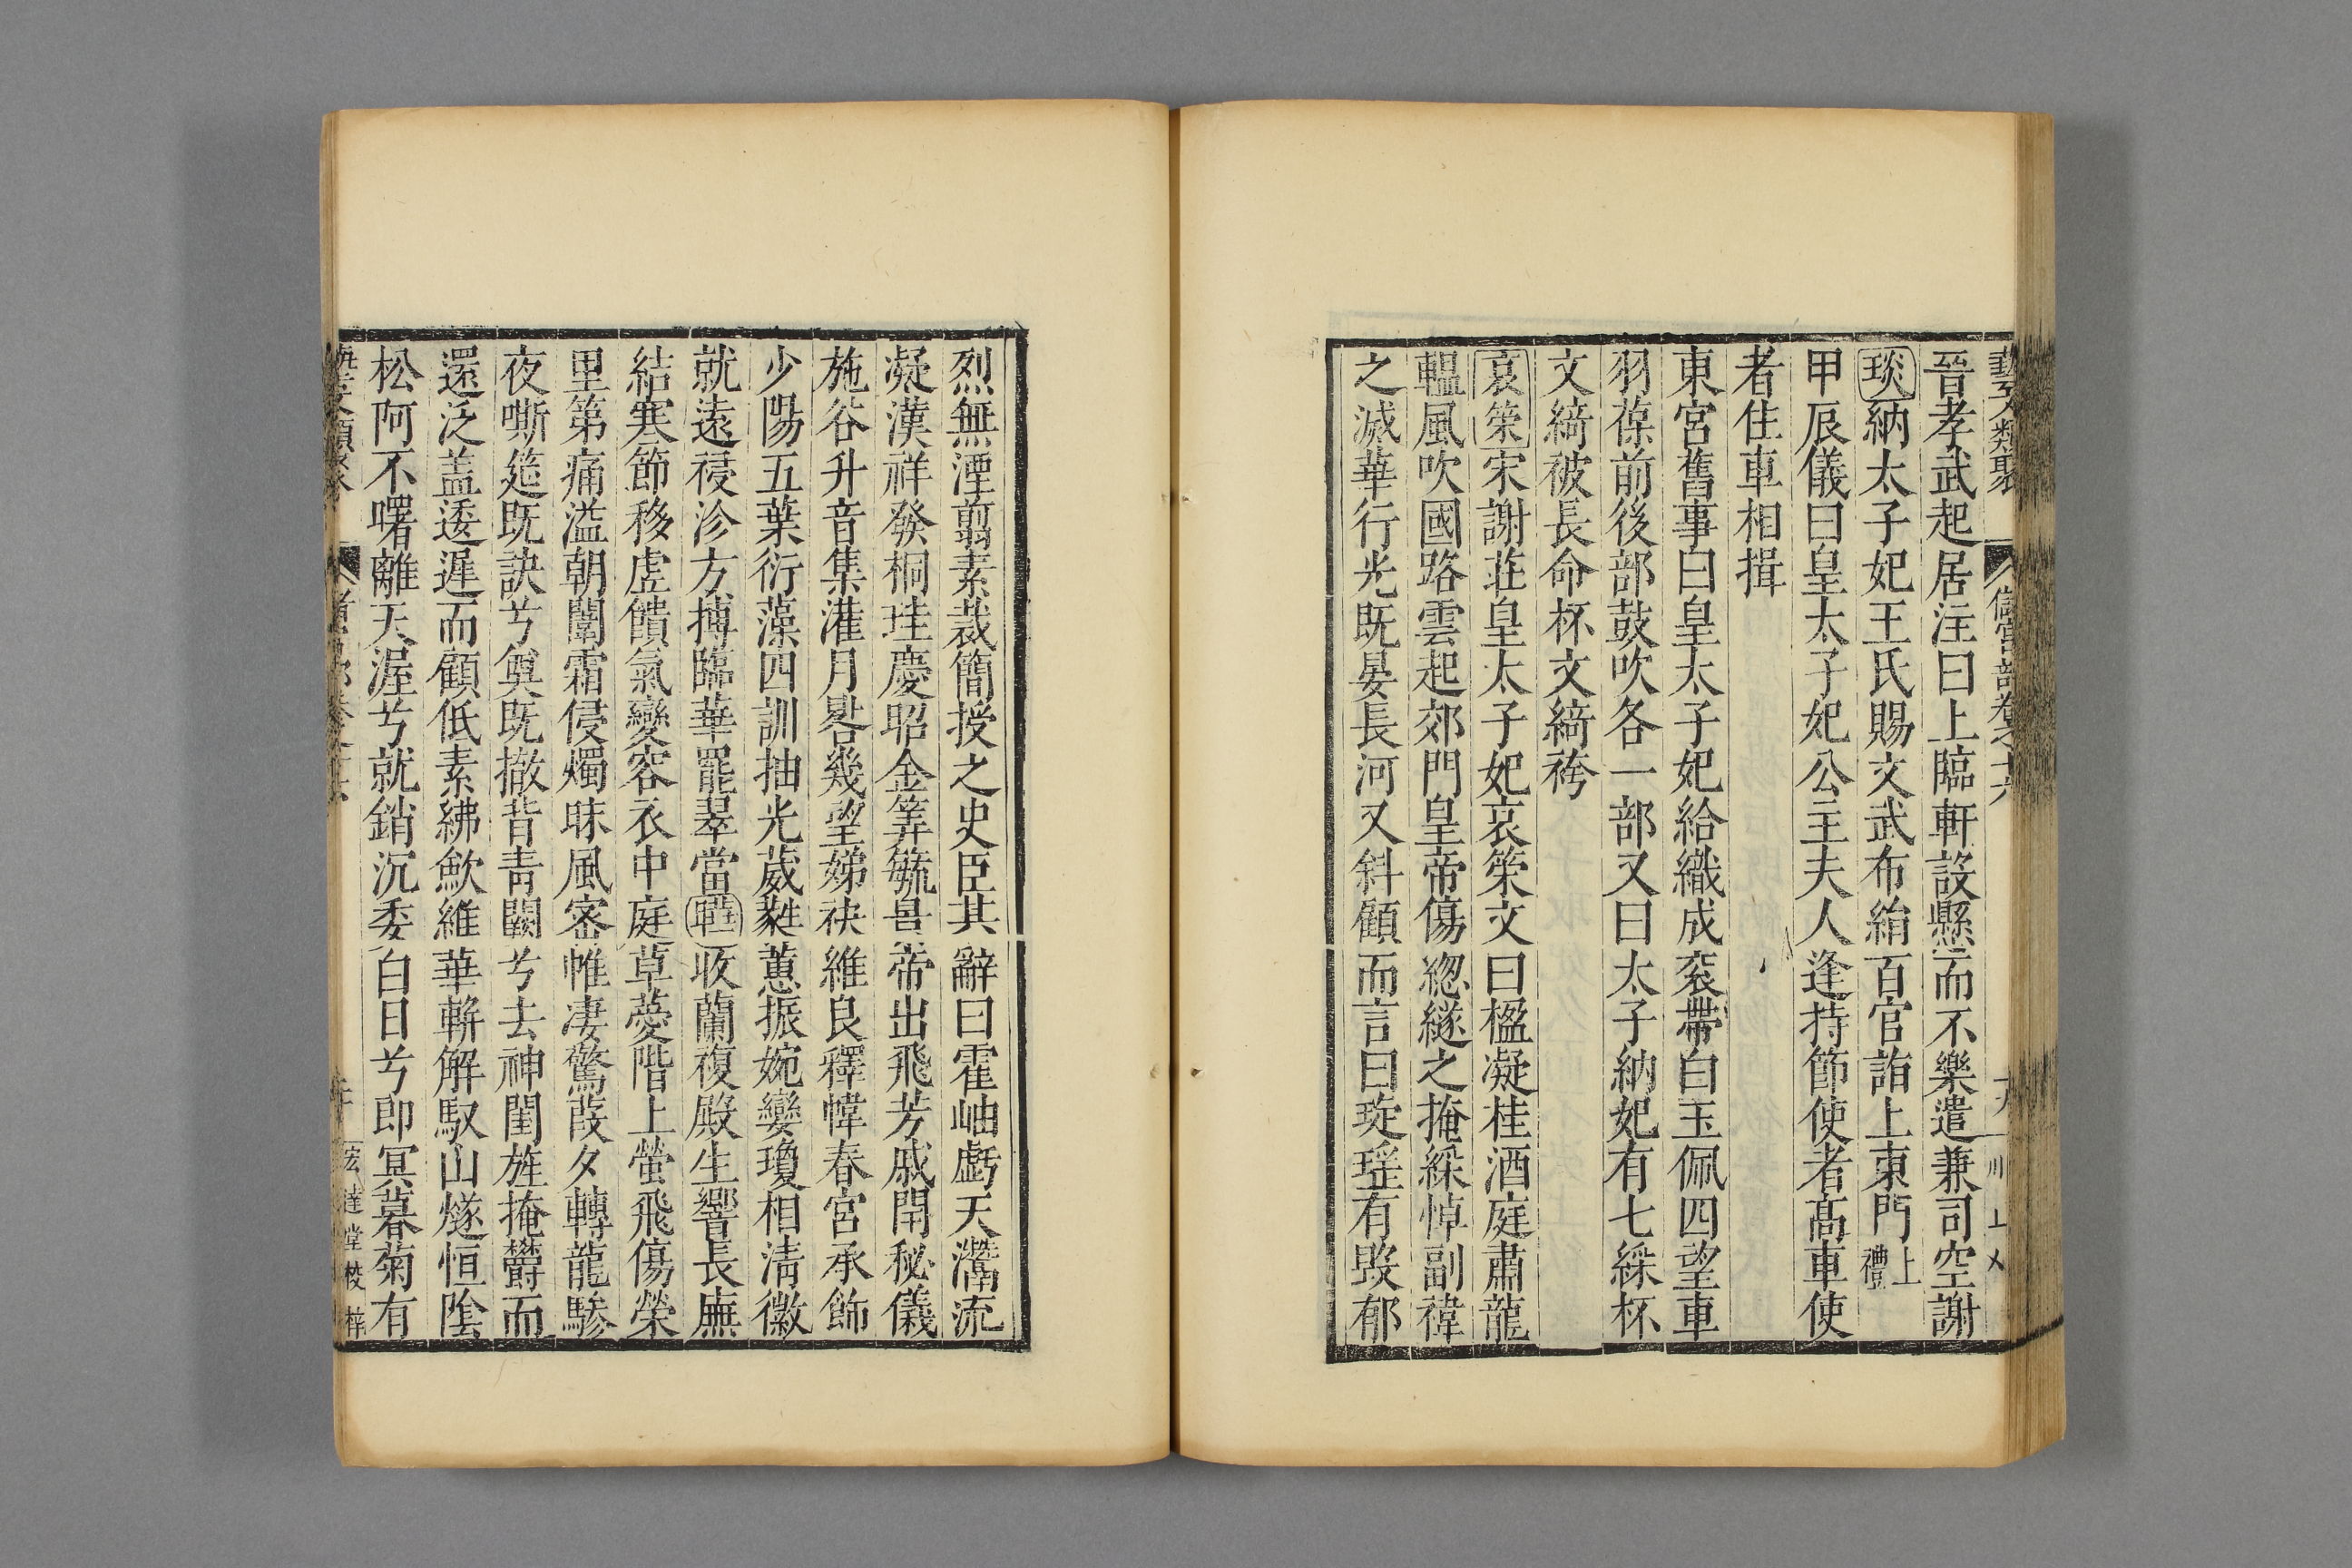 藝文類聚 儲宮部卷之十六
晉孝武起居注曰上臨軒設懸而不樂遣兼司空謝
琰納太子妃王氏賜文武布絹百官詣上東門上禮
甲辰儀曰皇太子妃公主夫人逢持節使者髙車使
者住車相揖
東宮舊事曰皇太子妃給織成衮帶白玉佩四望車
羽葆前後部鼓吹各一部又曰太子納妃有七綵杯
文綺被長命杯文綺袴
哀策宋謝莊皇太子妃哀策文曰楹凝桂酒庭肅龍
轀風吹國路雲起郊門皇帝傷緫繸之掩綵悼副褘
之滅華行光既晏長河又斜顧而言曰琁瑤有毀郁
烈無湮翦素裁簡授之史臣其辭曰霍岫虧天灊流
凝漢祥發桐珪慶昭金筭毓景帝出飛芳戚閈秘儀
施谷升音集灌月晷幾望娣袂維良釋幃春宮承飾
少陽五葉衍藻四訓抽光葳蕤蕙振婉孌瓊相清徽
就遠祲沴方摶臨華罷翠當收蘭複殿生響長廡
結寒節移虛饋氣變容衣中庭草薆階上螢飛傷榮
里第痛溢朝闈霜侵燭昧風密帷凄驚葭夕轉龍驂
夜嘶筵既訣兮奠既撤背青闕兮去神閨旌掩欝而
還泛盖逶遲而顧低素紼歛維華輧解馭山燧恒陰
松阿不曙離天渥兮就銷沉委白日兮即冥暮菊有
堂校梓